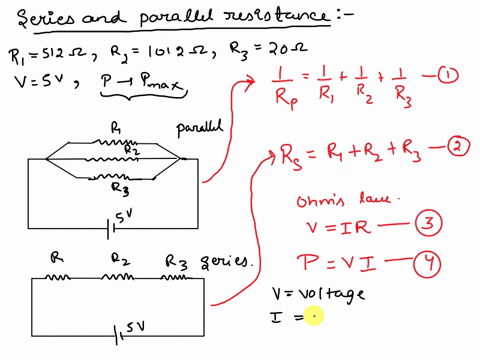 Series and parallel resistance :-
R₁ = 512 Ω, R₂ = 1012 Ω, R₃ = 20 Ω
V = 5V, P → Pmax
1/Rp = 1/R₁ + 1/R₂ + 1/R₃ — ①
R₁ parallel
R₂
R₃
5V
RS = R₁ + R₂ + R₃ — ②
ohm's law.
V = IR — ③
P = VI — ④
R₁ R₂ R₃ series.
5V
V = voltage
I =